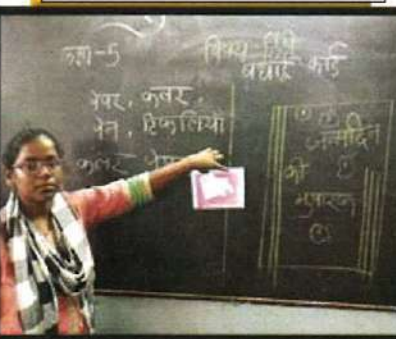 कक्षा-5
विषय-हिन्दी
बधाई कार्ड
पेपर, कवर,
पेन, टिकलियाँ
कलर
जन्मदिन
की
मुबारक